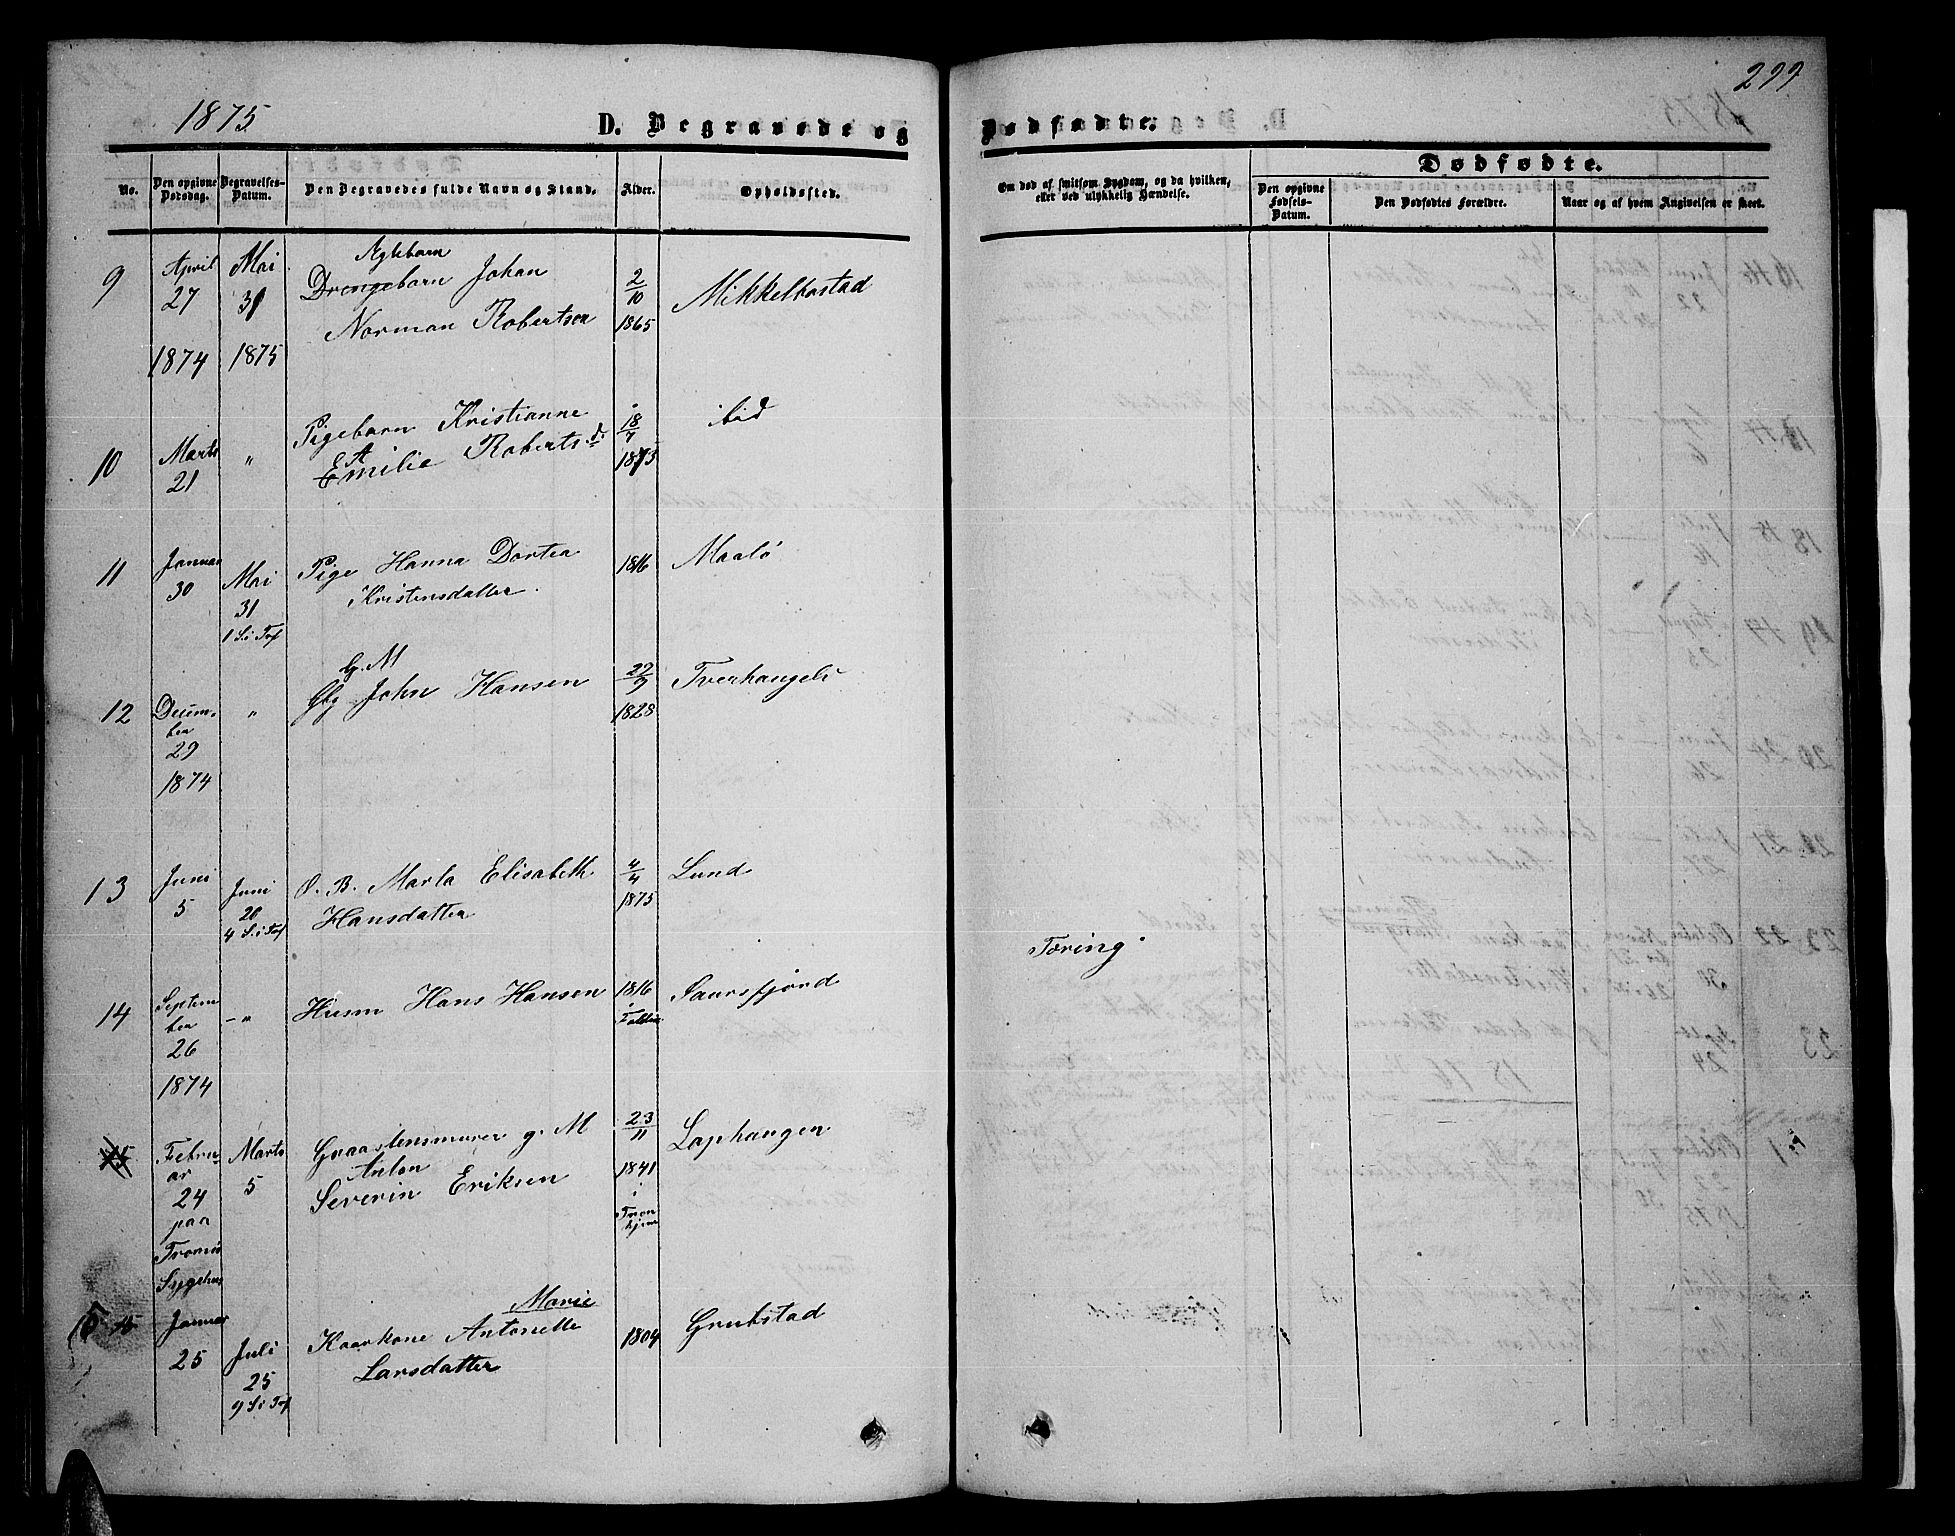 1875
D. Begravede og
Dødfødte.
299
Dødfødte.
No.
Den opgivne Dørsdag.
Begravelses-Datum.
Den Begravedes fulde Navn og Stand.
Alder.
Opholdssted.
Om død af smitsom Sygdom, og da hvilken, eller ved ulykkelig Hændelse.
Den opgivne Fødsels-Datum.
Den Dødfødtes Forældre.
Naar og af hvem Angivelsen er skeet.
9
April 27 1874
Mai 31 1875
Drengebarn Johan
Norman Robertsen
2/10 1865
Mikkelbostad
10
Marts 21
"
Pigebarn Kristianne
Emilie Robertsd.
18/7
ibid
11
Januar 30
Mai 31
1 S. i Tref
Pige Hanna Dortea
Kristensdatter.
1816
Maalø
12
Decemb­er 29 1874
"
G. M
Gbg John Hansen
29/9 1828
Tverhaugeli
13
Juni 5
Juni 20
4 S. i Tref
O. B. Marta Elisabeth
Hansdatter
4/4 1875
Lund
14
September 26 1874
"
Husm Hans Hansen
1816
Saursfjord
Tæring
15
Februar 24 paa Tromsø Sygehus
Marts 5
Graastensmurer g. M
Anton
Severin Eriksen
23/11 1841 i Tronhjem
Laphaugen
15
Januar 25
Juli 25
9 S. i Tref
Marie
Kaarkone Antonette
Larsdatter
1804
Grubstad